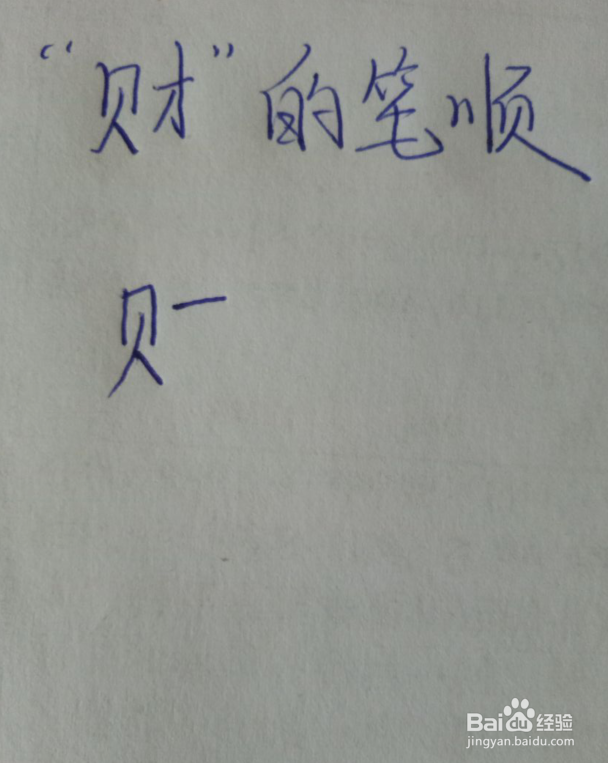 “财”的笔顺
贝一
Baidu经验
jingyan.baidu.com